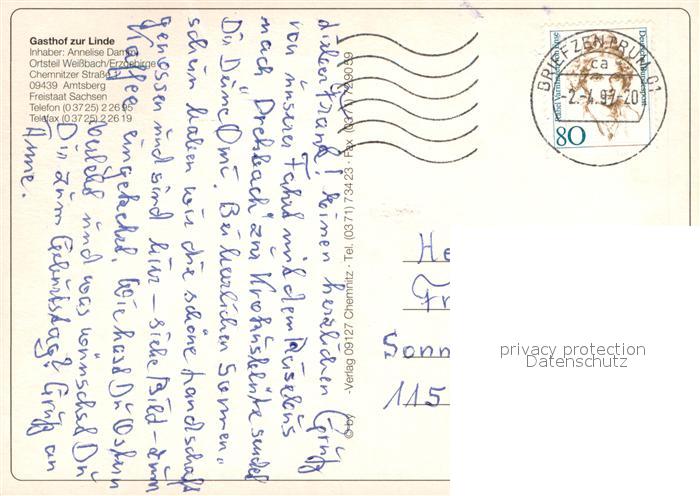 Gasthof zur Linde
Inhaber: Annelise Damm
Ortsteil Weißbach/Erzgebirge
Chemnitzer Straße
09439 Amtsberg
Freistaat Sachsen
Telefon (0 37 25) 2 26 95
Telefax (0 37 25) 2 26 19
Lieber Frank! Einen herzlichen Gruß
von unserer Fahrt mit dem
nach Drebach zur Krokusblüte sendet
Dir Deine Omi. Bei herrlichem Sonnen-
schein haben wir die schöne Landschaft
genossen und sind hier - siehe Bild - zum
Kaffee eingekehrt. Wie hast Du Ostern
verlebt und was wünschst Du
Dir zum Geburtstag? Gruß an
Anne.
-Verlag 09127 Chemnitz · Tel. (0371) 7 34 23 · Fax (0371) 7 29 00 59
© by
Deutsche Bundespost
80
BRIEFZENTRUM 01
ca
-2.-4.97-20
He
Fr
Sonn
115
privacy protection
Datenschutz